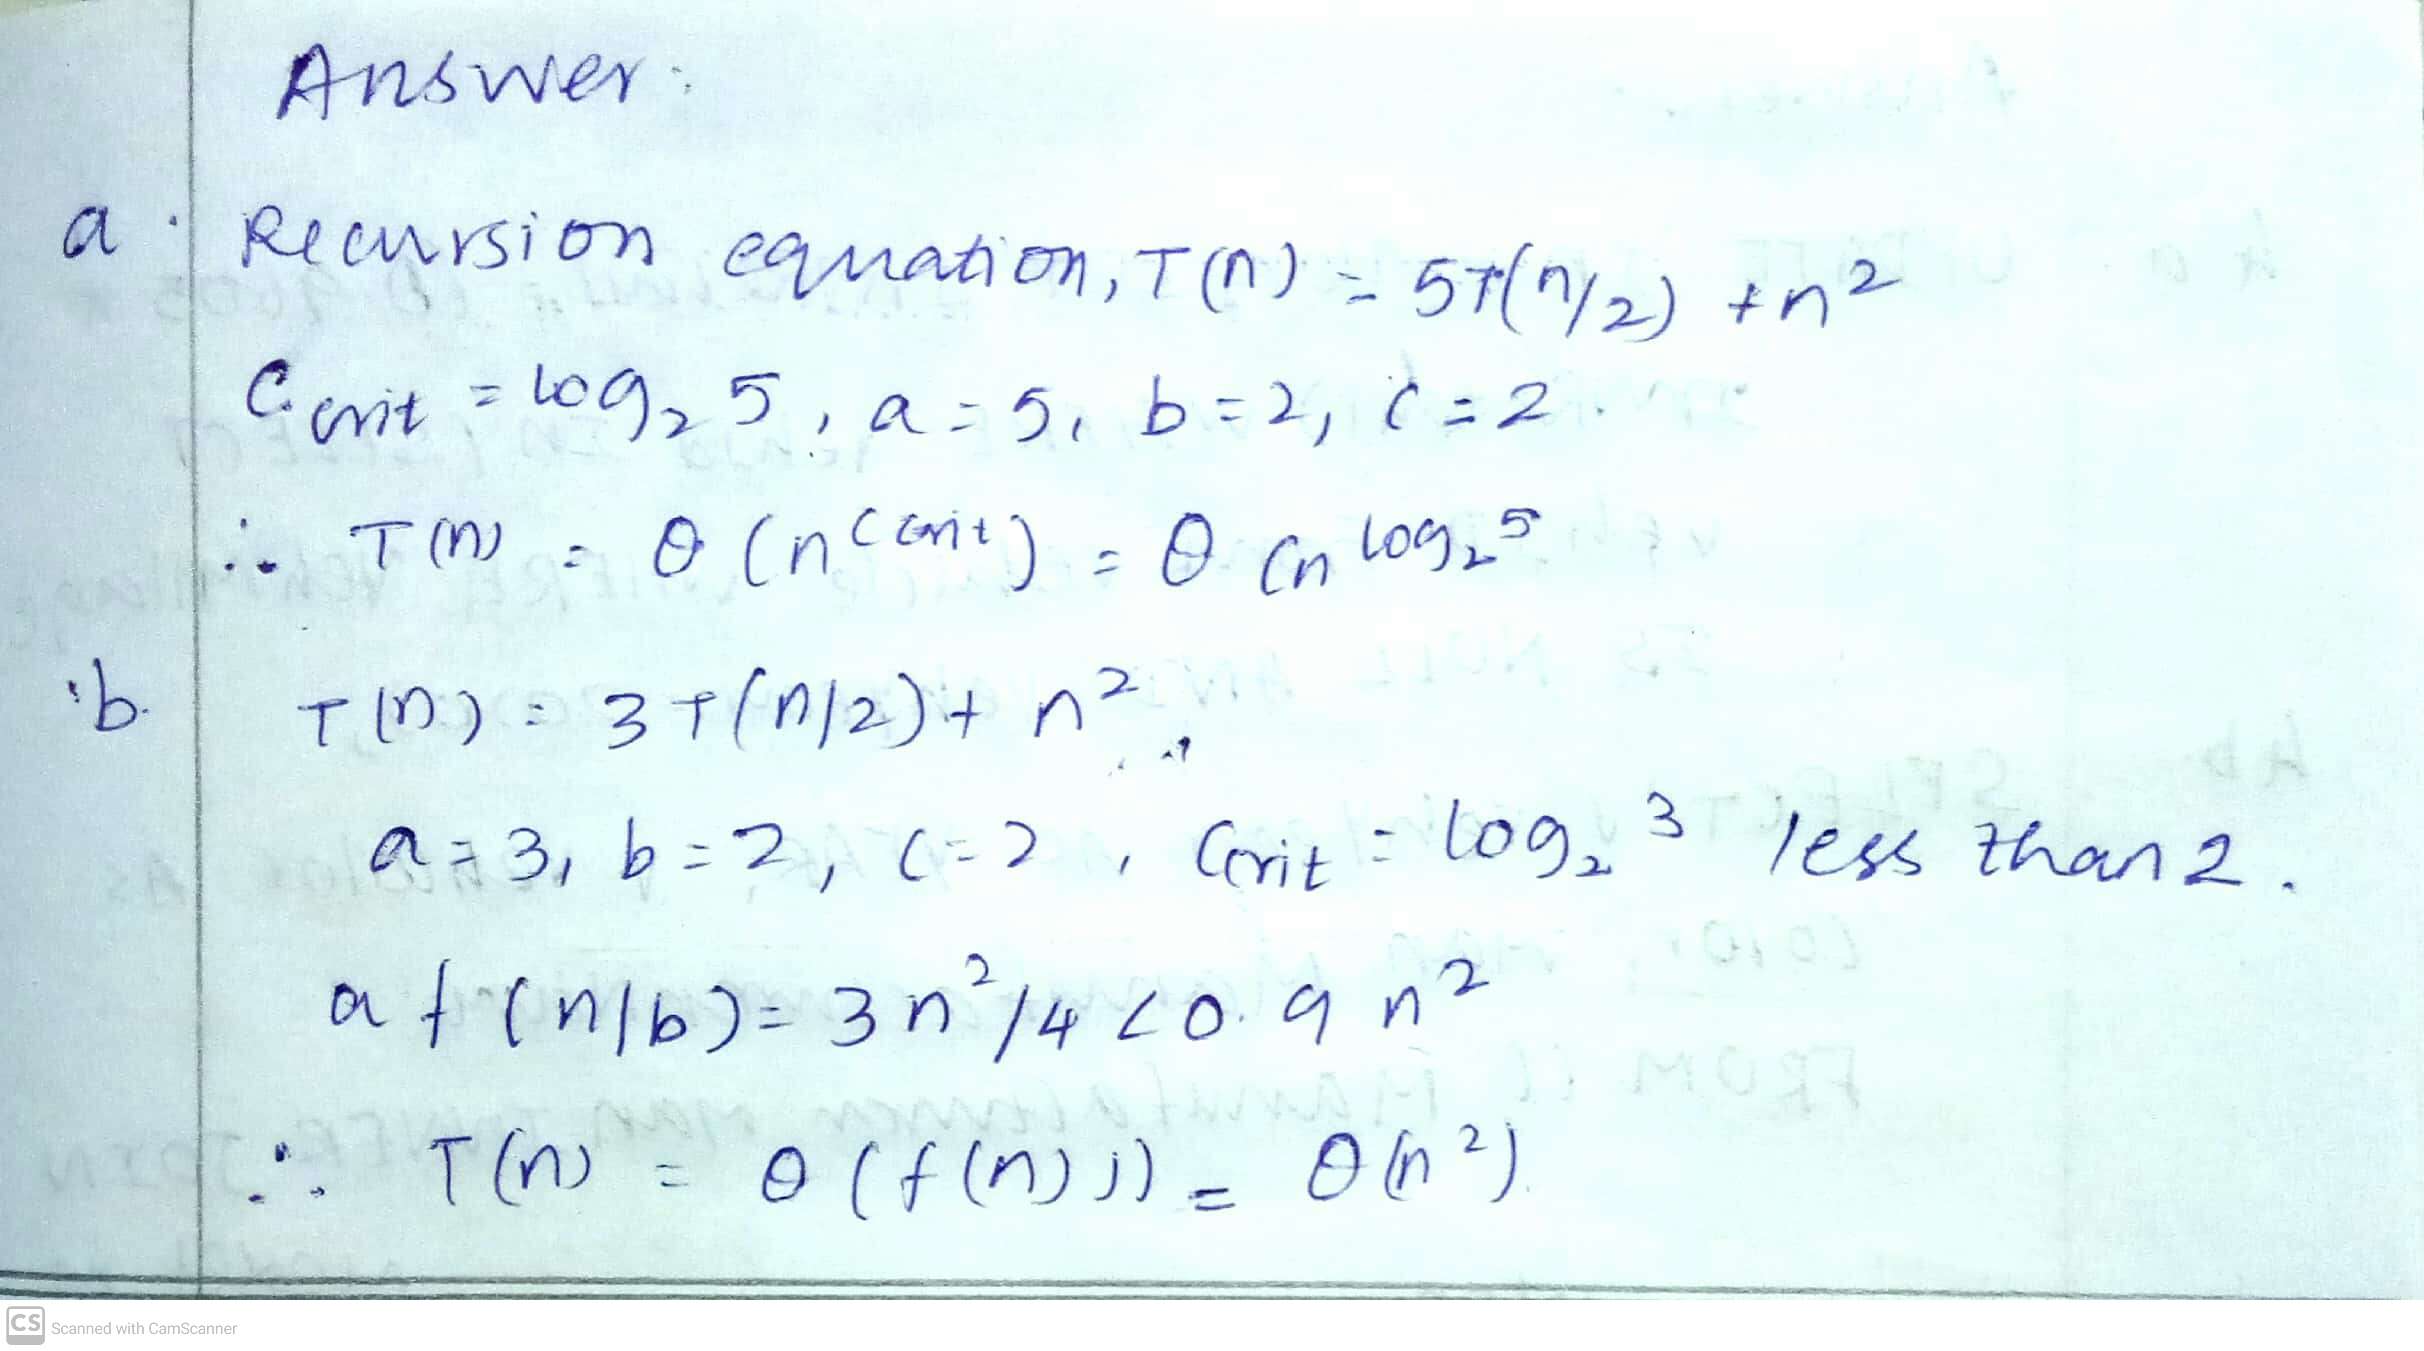 Answer:
a. Recursion equation, T(n) = 5T(n/2) + n²
Ccrit = log₂5, a = 5, b = 2, c = 2.
∴ T(n) = θ(n^Ccrit) = θ(n^log₂5
b. T(n) = 3T(n/2) + n²
a = 3, b = 2, c = 2, Ccrit = log₂3 less than 2.
a f(n/b) = 3n²/4 < 0.9 n²
∴ T(n) = θ(f(n))) = θ(n²)
CS Scanned with CamScanner